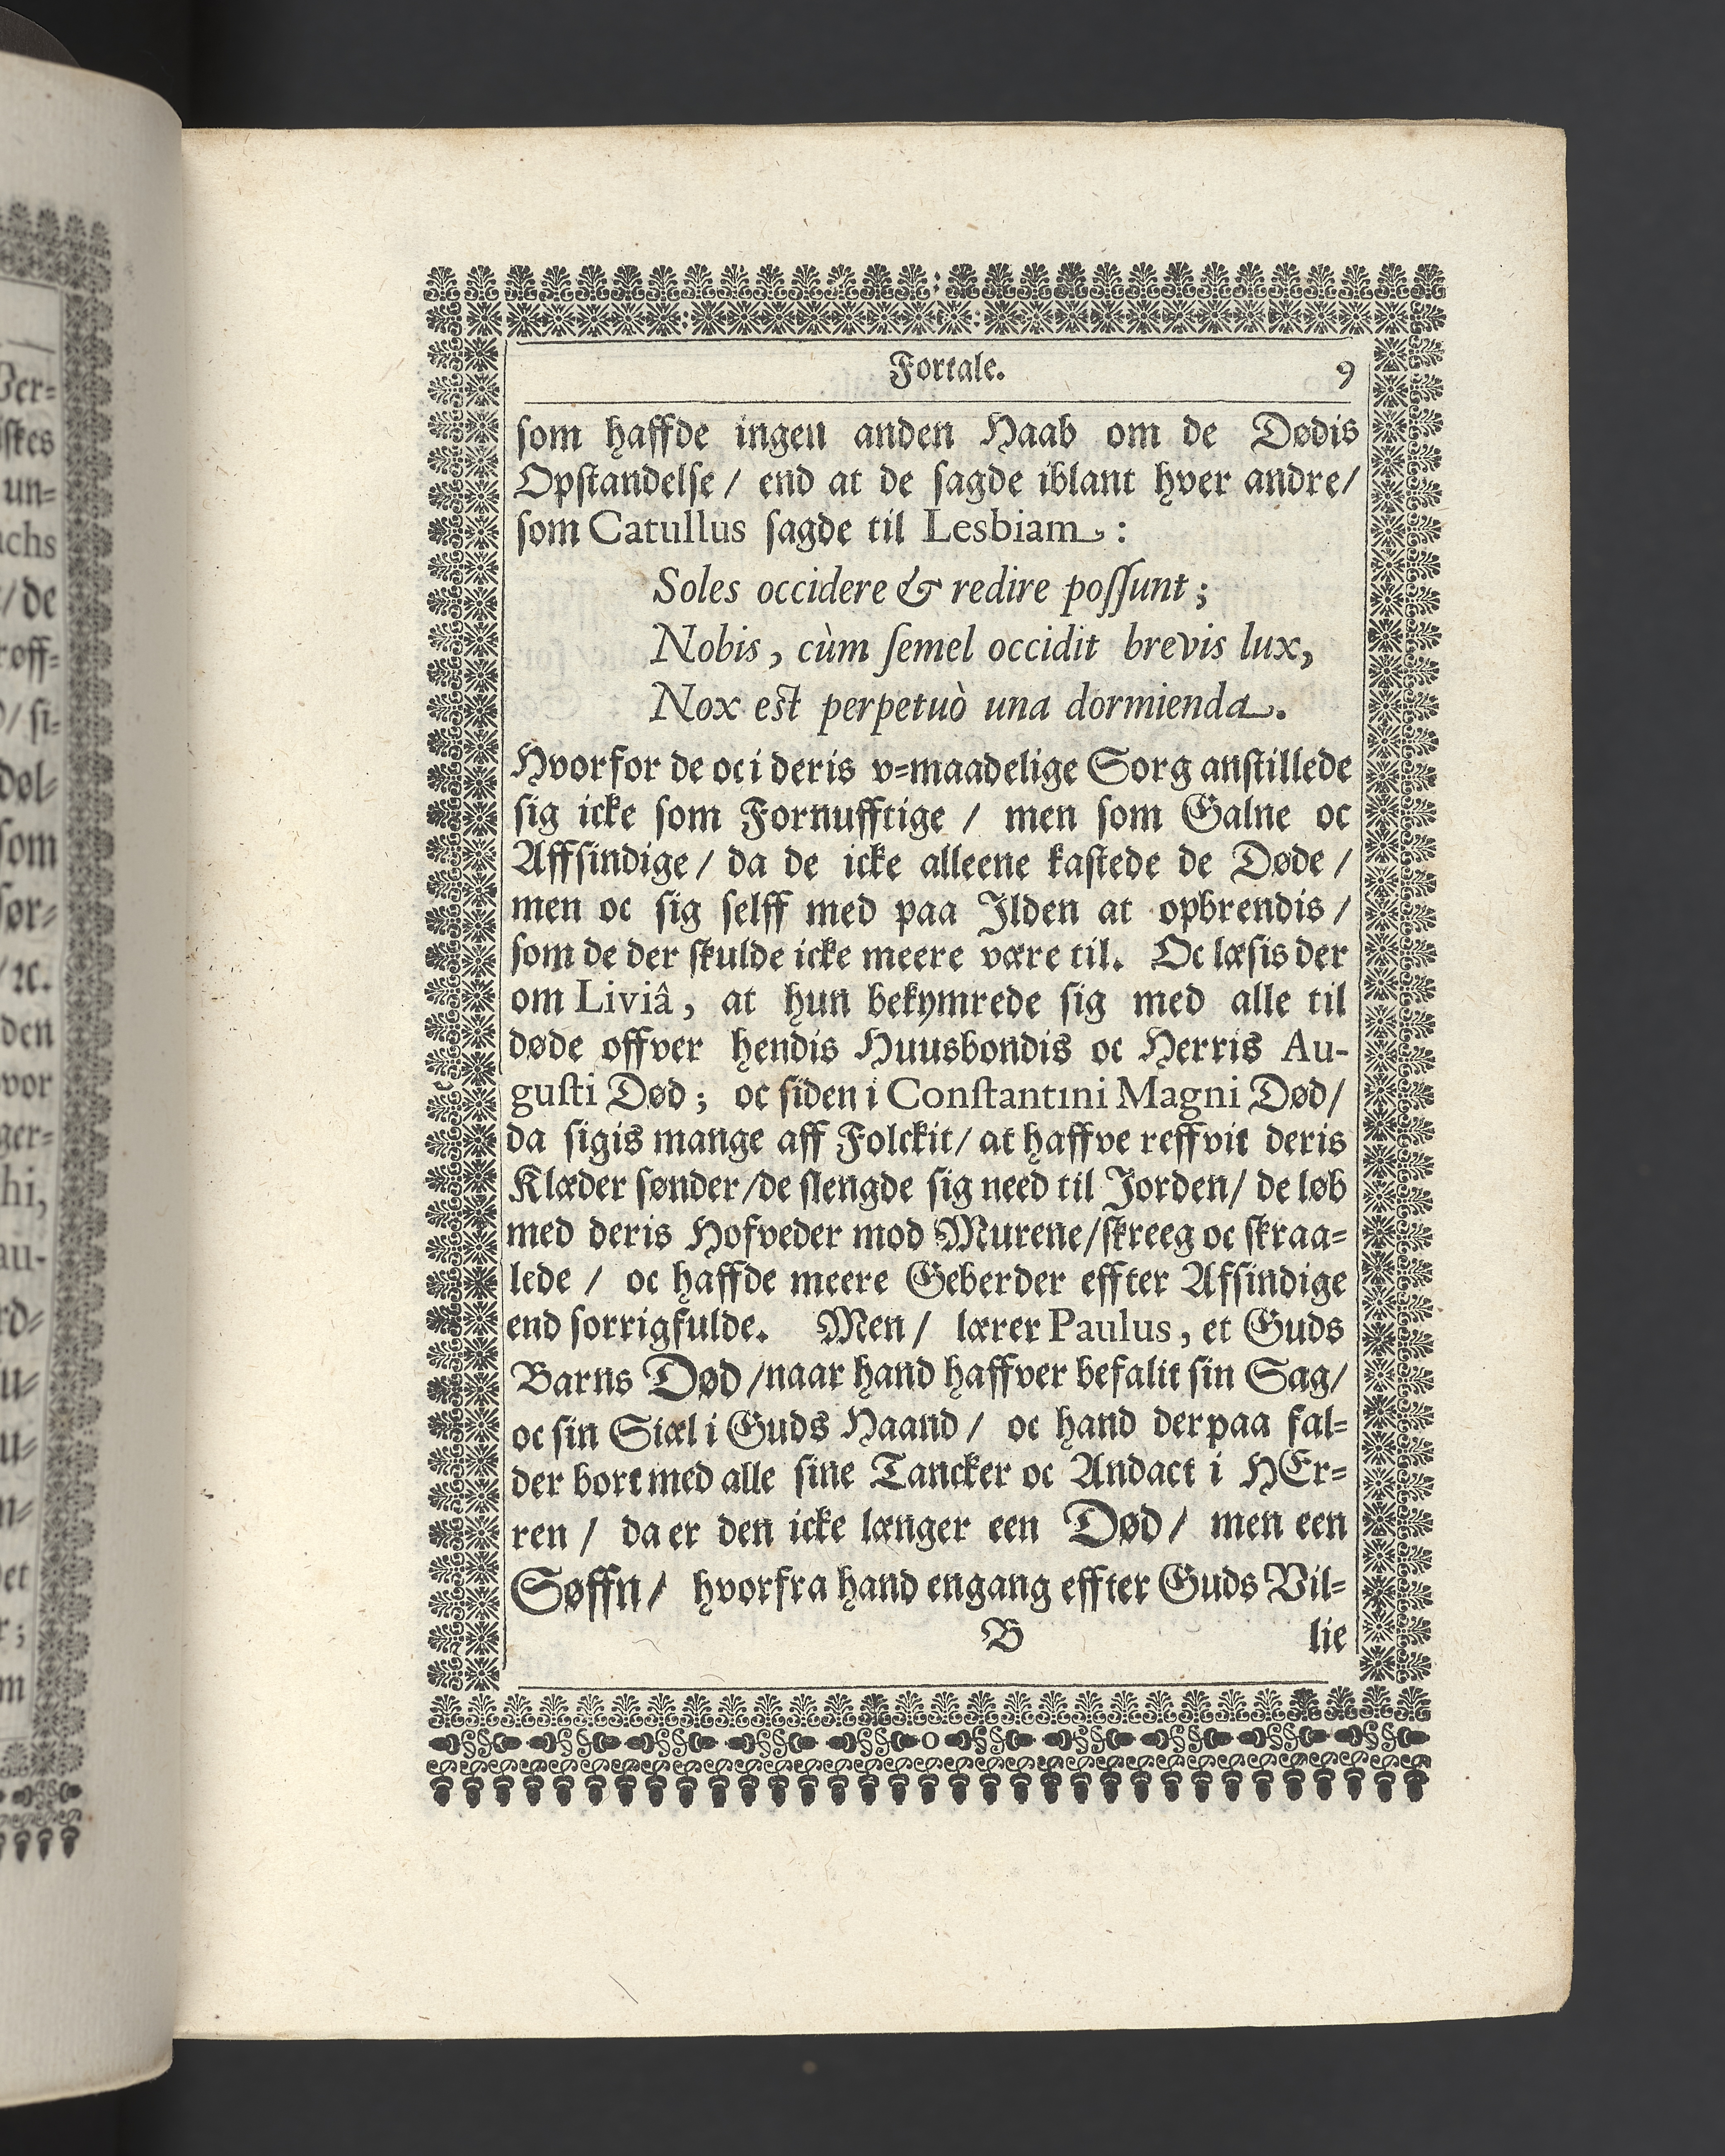 Fortale. 9
som haffde ingen anden Haab om de Dødis
Opstandelse / end at de sagde iblant hver andre /
som Catullus sagde til Lesbiam :
Soles occidere & redire possunt ;
Nobis , cùm semel occidit brevis lux,
Nox est perpetuò una dormienda.
Hvorfor de oc i deris v=maadelige Sorg anstillede
sig icke som Fornufftige / men som Galne oc
Affsindige / da de icke alleene kastede de Døde /
men oc sig selff med paa Ilden at opbrendis /
som de der skulde icke meere være til. Oc læsis der
om Liviâ, at hun bekymrede sig med alle til
døde offver hendis Huusbondis oc Herris Au-
gusti Død ; oc siden i Constantini Magni Død /
da sigis mange aff Folckit / at haffve reffvit deris
Klæder sønder / de slengde sig need til Jorden / de løb
med deris Hofveder mod Murene / skreeg oc skraa=
lede / oc haffde meere Geberder effter Afsindige
end sorrigfulde. Men / lærer Paulus, et Guds
Barns Død / naar hand haffver befalit sin Sag /
oc sin Siæl i Guds Haand / oc hand derpaa fal=
der bort med alle sine Tancker oc Andact i HEr=
ren / da er den icke længer een Død / men een
Søffn / hvorfra hand engang effter Guds Vil=
B lie